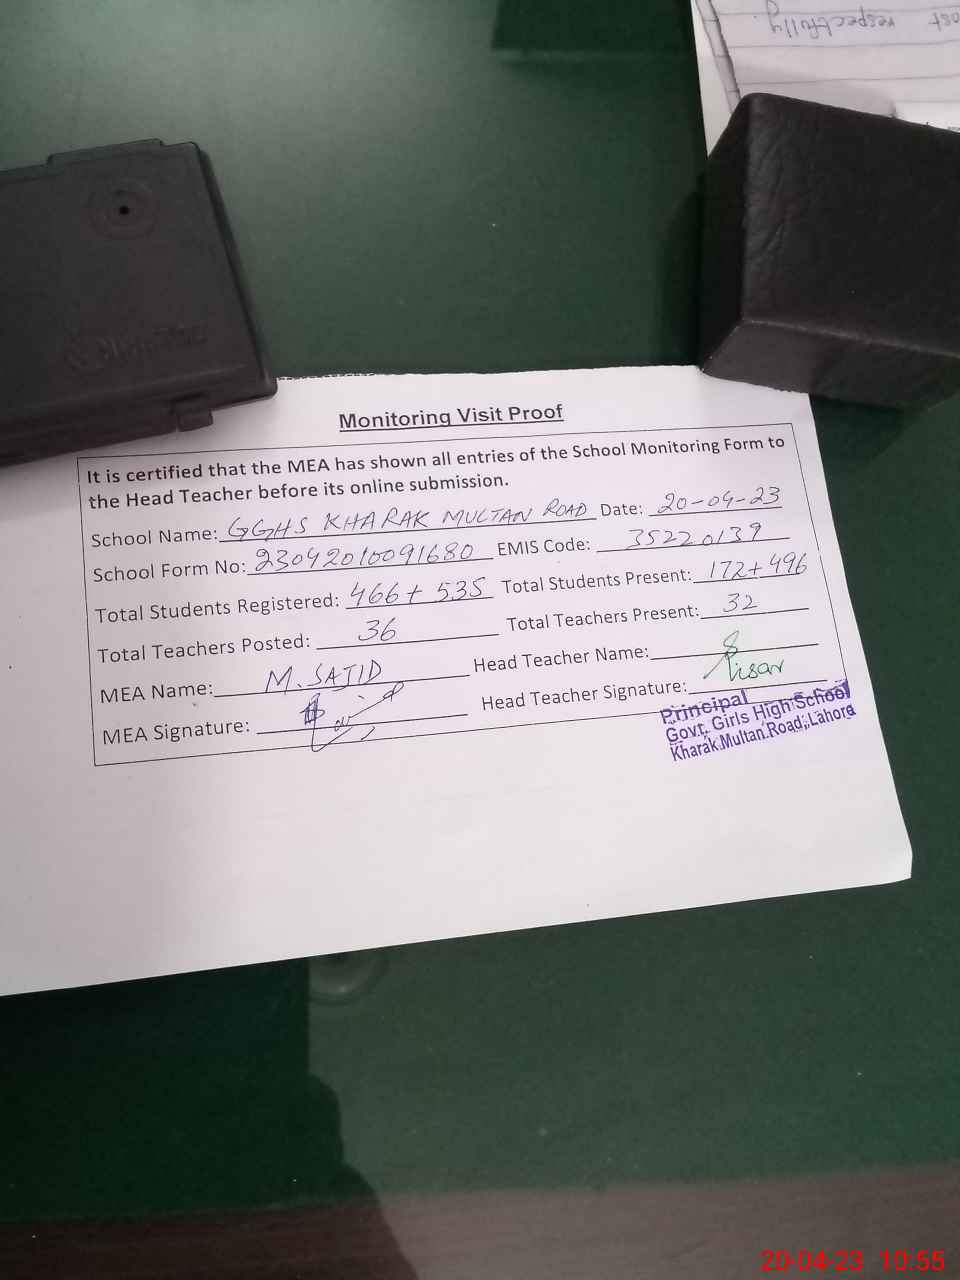 ost respectfully
Monitoring Visit Proof
It is certified that the MEA has shown all entries of the School Monitoring Form to
the Head Teacher before its online submission.
School Name: GGHS KHARAK MULTAN ROAD Date: 20-04-23
School Form No: 23042010091680 EMIS Code: 35220139
Total Students Registered: 466+535 Total Students Present: 172+496
Total Teachers Posted: 36 Total Teachers Present: 32
MEA Name: M. SAJID Head Teacher Name:
MEA Signature: Head Teacher Signature:
Principal
Govt. Girls High School
Kharak Multan Road, Lahore
20-04-23 10:55